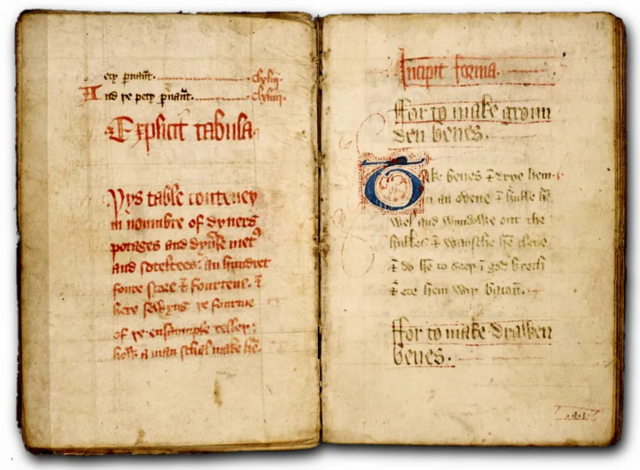 ety p̄uaūt. Cxliij
And ye pety p̄uaūt. Cxliiij
Explicit tabula
Þys table conteneþ
in noumbre of dyners
potages and dyu̅se metꝰ
and soteltees: an hundret
foure score & fourtene. &
here sewyng ye fourme
of ye ensample tellyþ:
how a man schal make hē.
12
Incipit forma.
ffor to make groun
den benes.
Take benes & drye hem
in an ovene & hulle hē
wel and wyndowe out the
hulkes & waysche hē clene
& do hē to seeþ ī god broth
& ete hem wyþ bacon.
ffor to make drawen
benes.